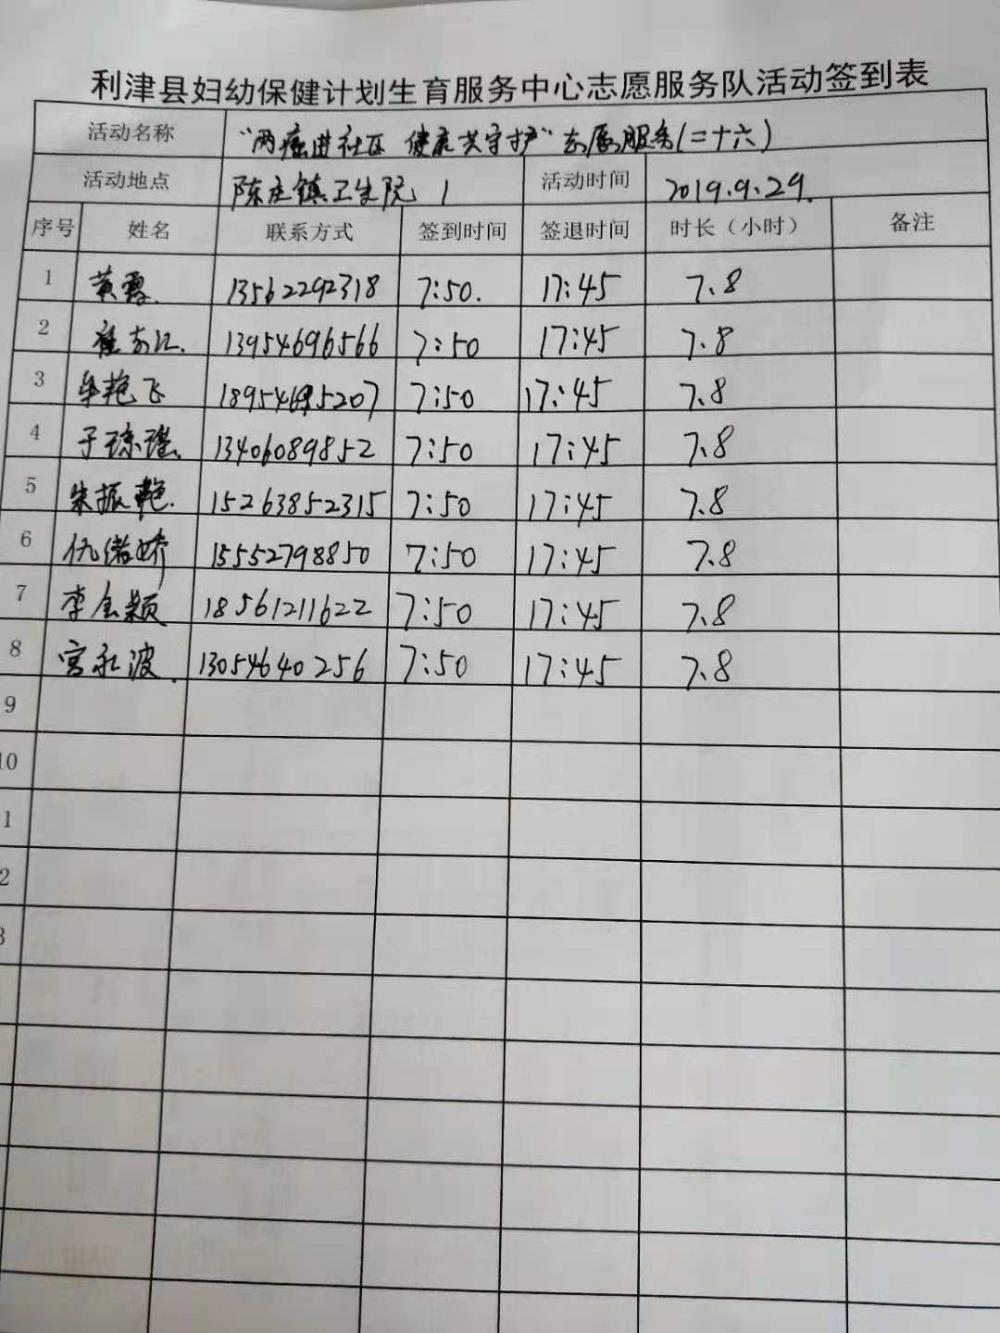 利津县妇幼保健计划生育服务中心志愿服务队活动签到表
活动名称 “两癌进社区 健康共守护”志愿服务(二十六)
活动地点 陈庄镇卫生院 1 活动时间 2019.9.29.
序号 姓名 联系方式 签到时间 签退时间 时长（小时） 备注
1 黄露. 13562292318 7:50. 17:45 7.8
2 崔志江. 13954696566 7:50 17:45 7.8
3 牟艳飞 7:50 17:45 7.8
4 于琼瑶. 13406089852 7:50 17:45 7.8
5 朱振艳. 15263852315 7:50 17:45 7.8
6 仇绪娇 15552798850 7:50 17:45 7.8
7 李金颖 18561211622 7:50 17:45 7.8
8 宫永波. 13054640256 7:50 17:45 7.8
9
10
1
2
3